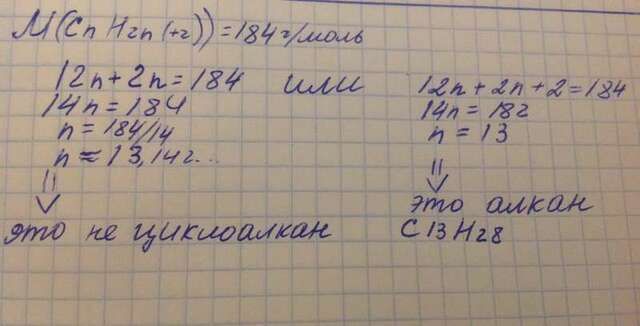 M(CnH2n(+2)) = 184 г/моль
12n + 2n = 184 или
14n = 184
n = 184/14
n ≈ 13,142...
⇓
это не циклоалкан
12n + 2n + 2 = 184
14n = 182
n = 13
⇓
это алкан
C13H28